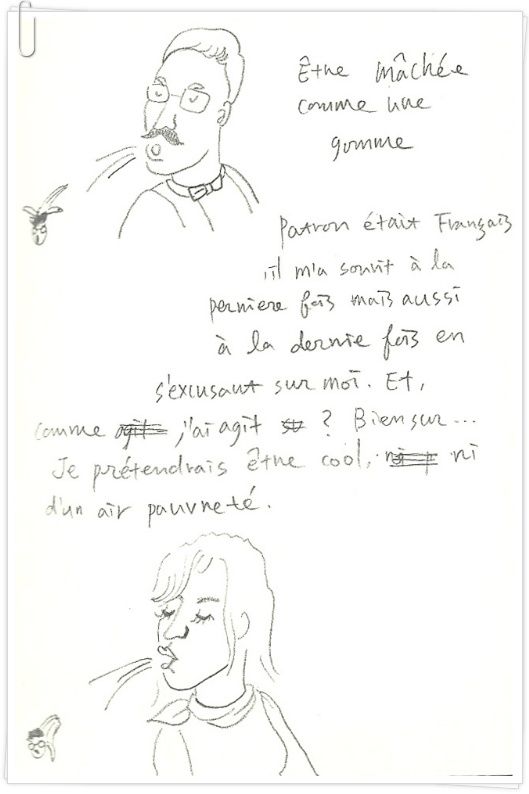 Être mâchée
comme une
gomme
Patron était Français
, il m'a sourit à la
perniere fois mais aussi
à la dernie fois en
s'excusant sur moi. Et,
comme agit j'ai agit su ? Bien sur...
Je prétendrais être cool, ni p ni
d'un air pauvreté.